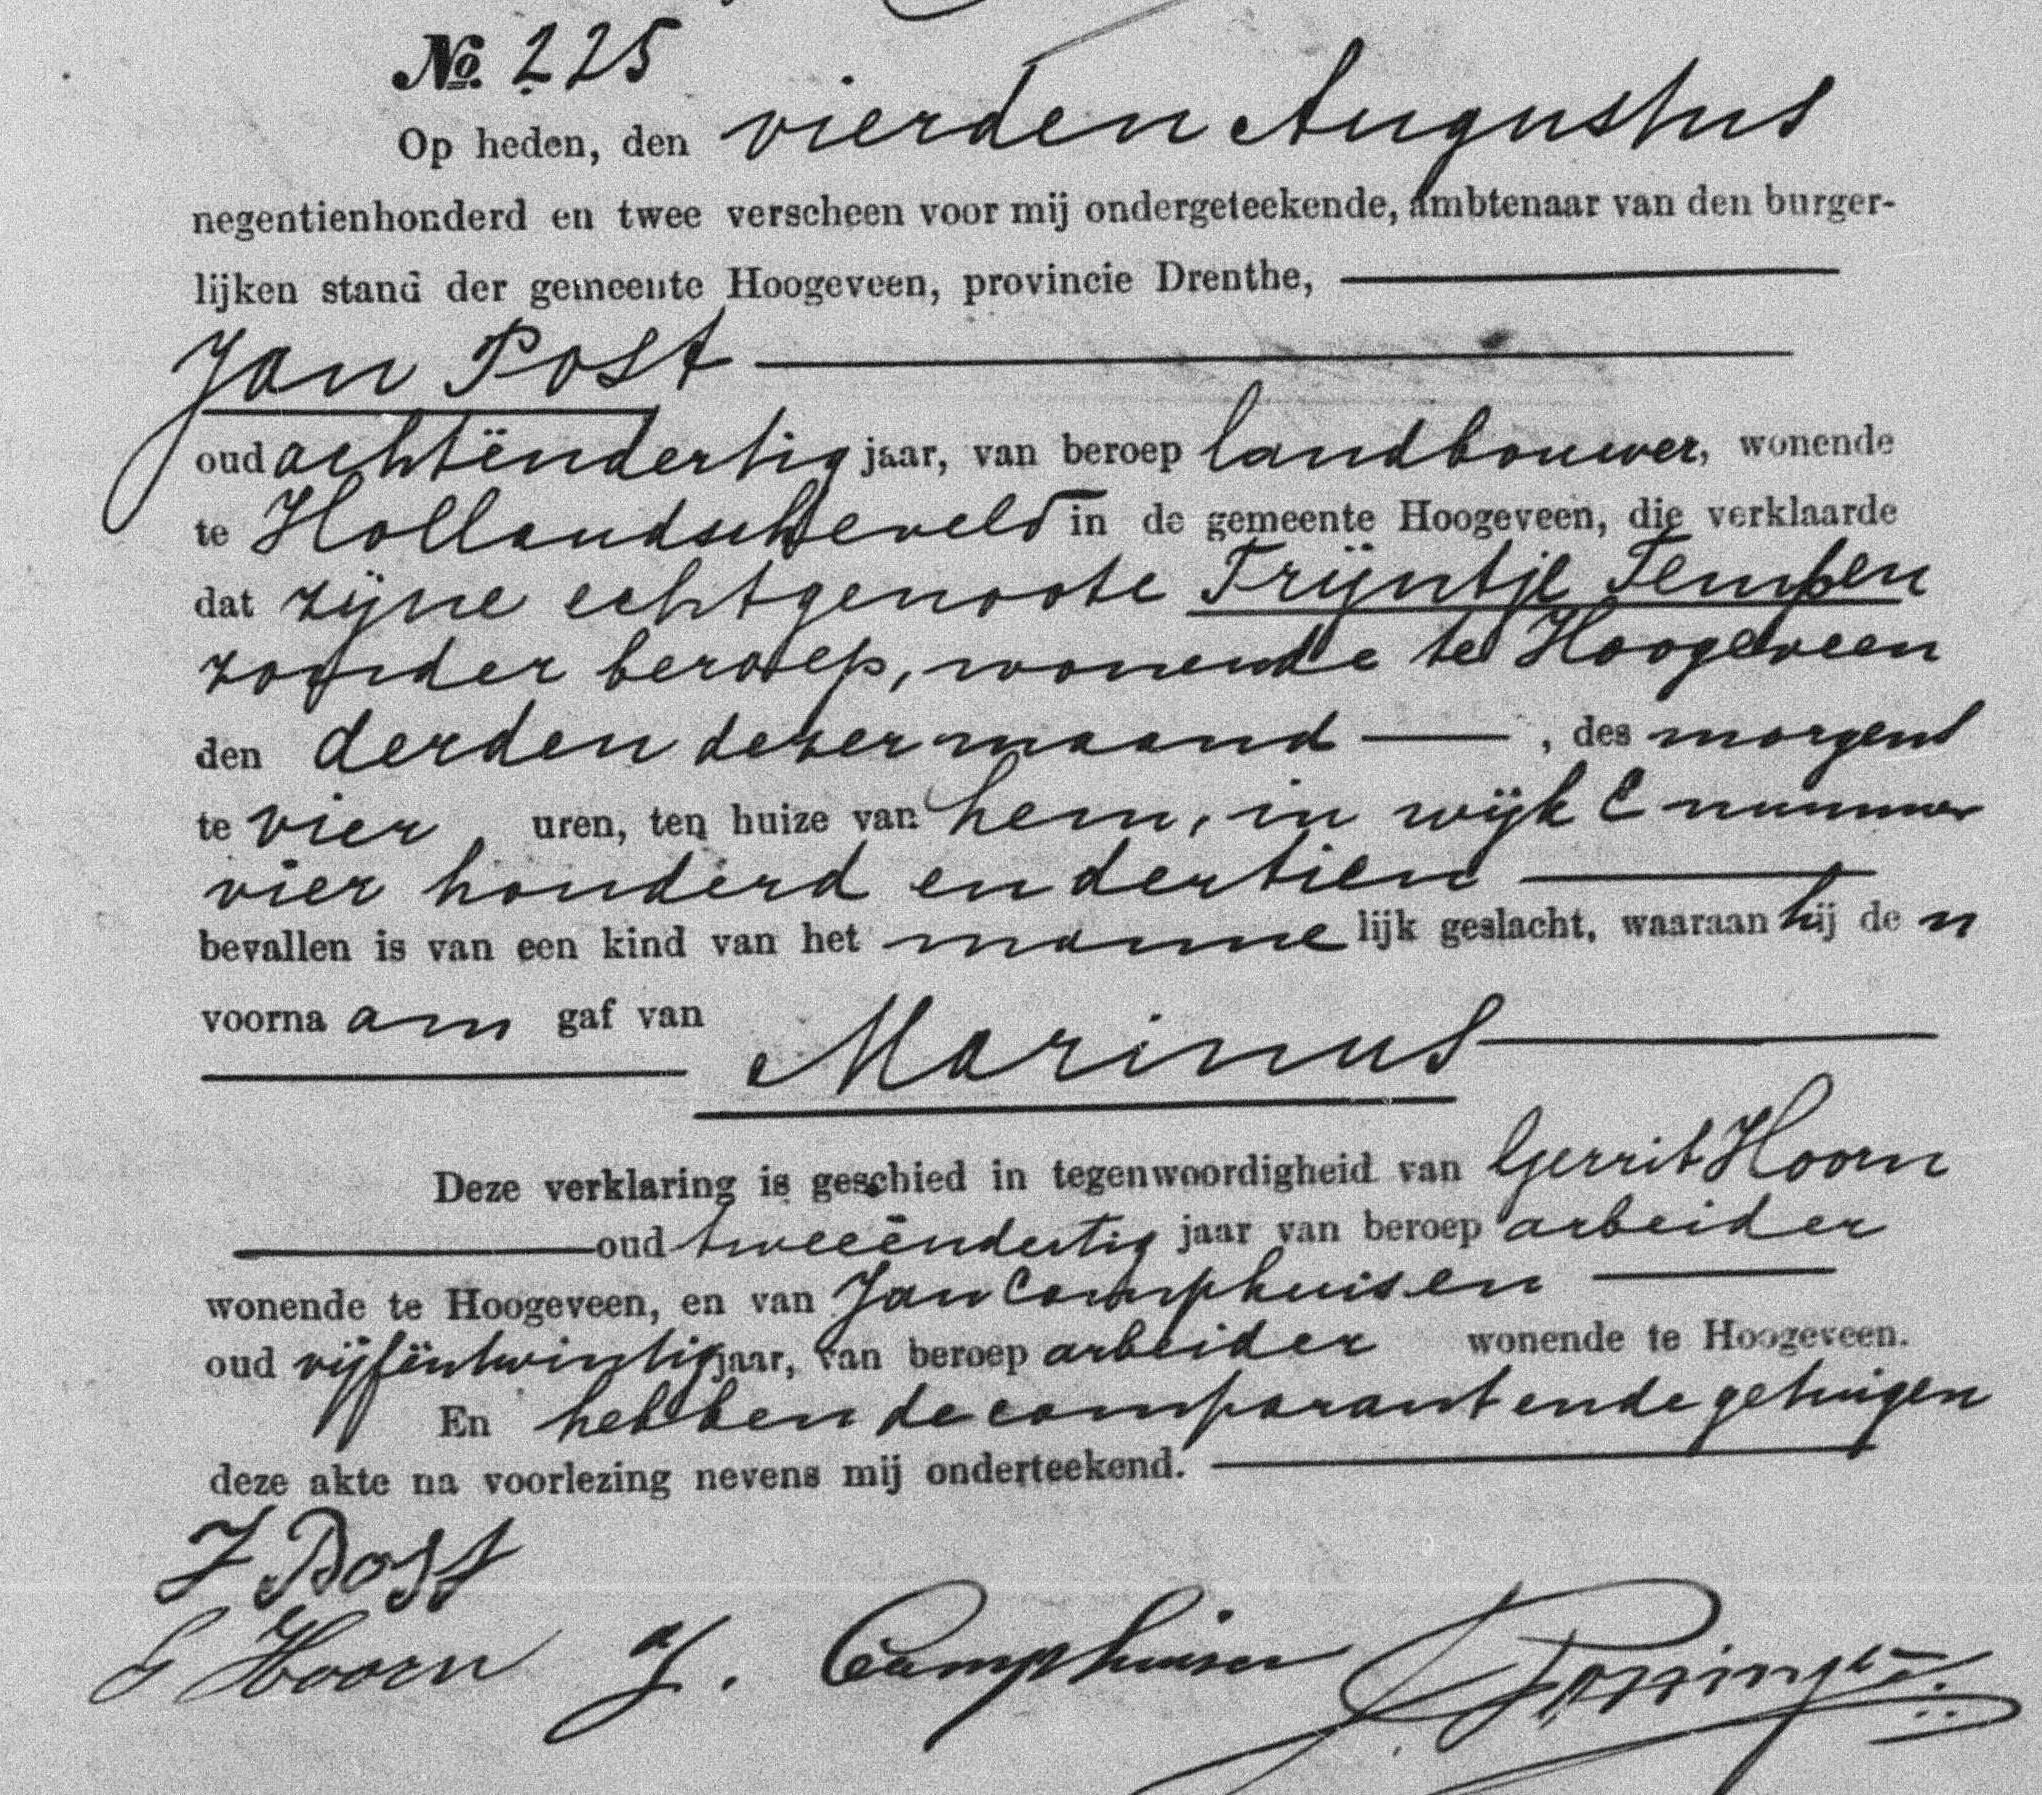 No. 225
Op heden, den vierden Augustus
negentienhonderd en twee verscheen voor mij ondergeteekende, ambtenaar van den burger-
lijken stand der gemeente Hoogeveen, provincie Drenthe,
Jan Post
oud achtëndertig jaar, van beroep landbouwer, wonende
te Hollandscheveld in de gemeente Hoogeveen, die verklaarde
dat zijne echtgenoote Trijntje Tempen
zonder beroep, wonende te Hoogeveen
den derden dezer maand, des morgens
te vier uren, ten huize van hem, in wijk C nummer
vier honderd en dertien
bevallen is van een kind van het mannelijk geslacht, waaraan hij den
voornaam gaf van
Marinus
Deze verklaring is geschied in tegenwoordigheid van Gerrit Hoorn
oud tweeëndertig jaar van beroep arbeider
wonende te Hoogeveen, en van Jan Camphuisen
oud vijfëntwintig jaar, van beroep arbeider wonende te Hoogeveen.
En hebben de comparant en de getuigen
deze akte na voorlezing nevens mij onderteekend.
J Post
G Hoorn J. Camphuisen